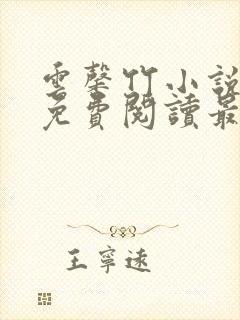 雲馨竹小說
免費閱讀最
王寧遠